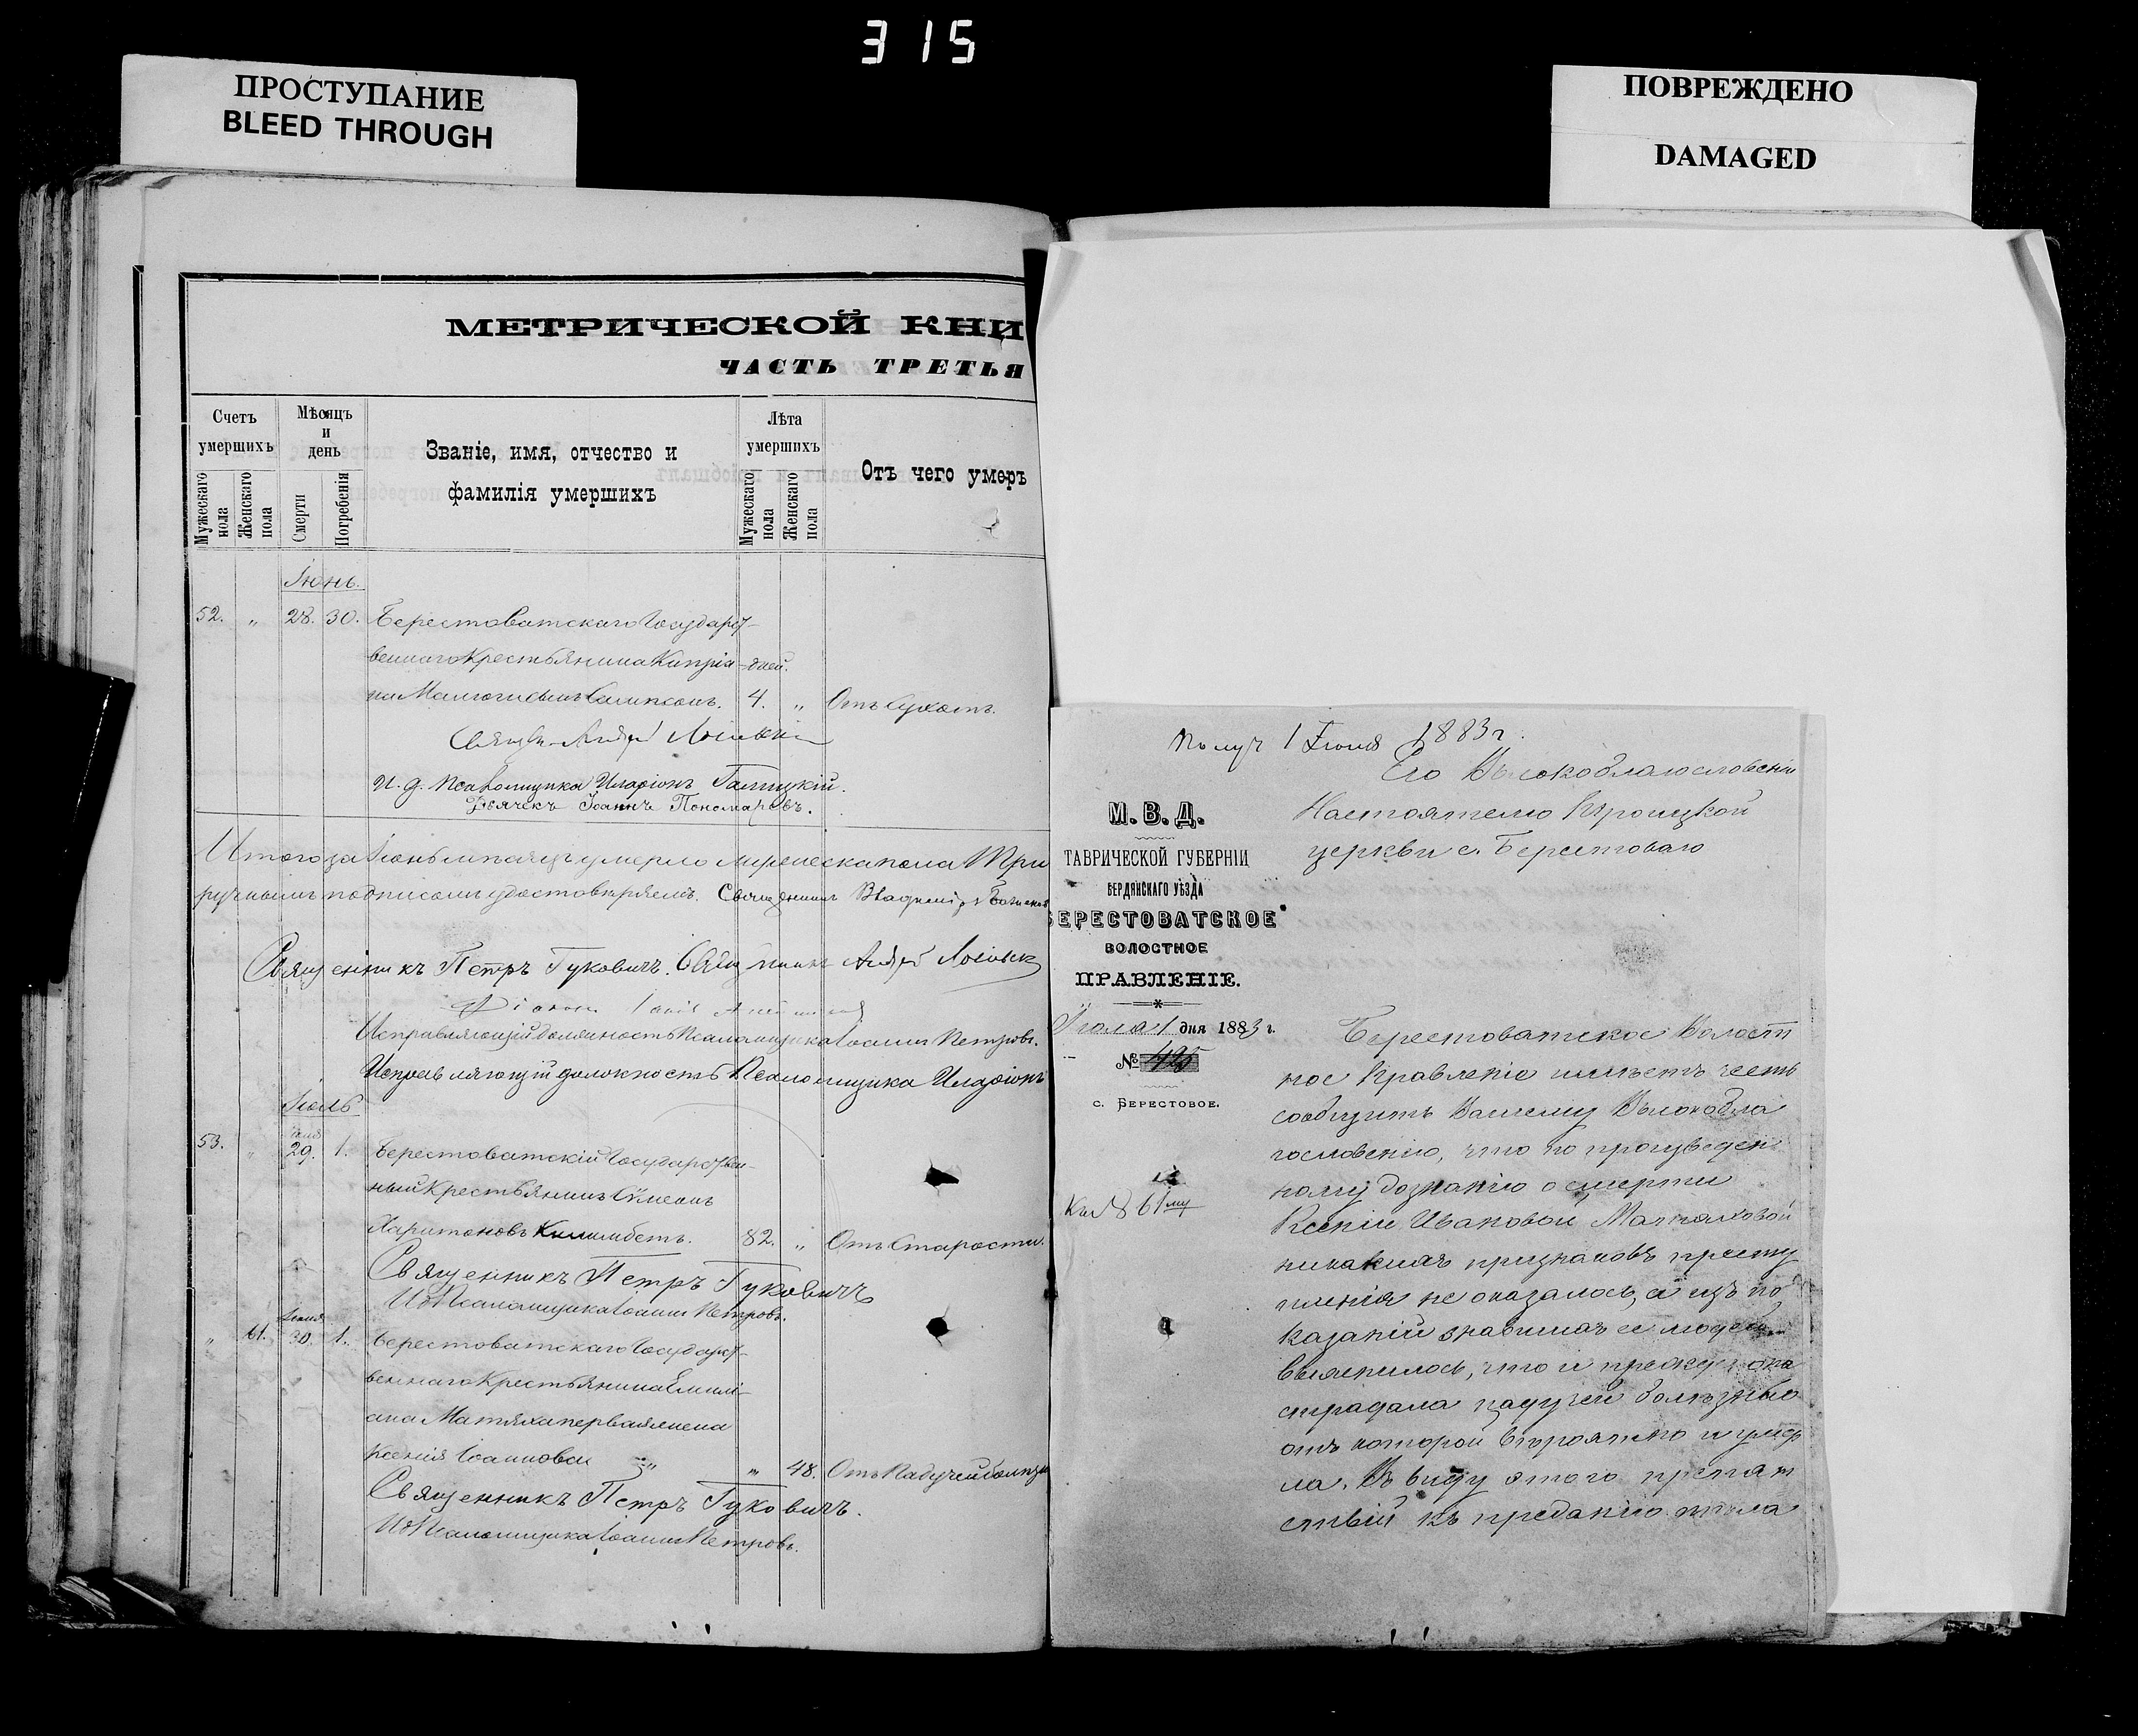 315
ПРОСТУПАНИЕ
BLEED THROUGH
ПОВРЕЖДЕНО
DAMAGED
МЕТРИЧЕСКОЙ КНИ
ЧАСТЬ ТРЕТЬЯ
Счетъ умершихъ
Мѣсяцъ и день
Званіе, имя, отчество и
фамилія умершихъ
Лѣта умершихъ
Отъ чего умеръ
Мужескаго пола
Женскаго пола
Смерти
Погребенія
Мужескаго пола
Женскаго пола
Іюнь.
52. „ 28. 30. Берестоватскаго Государст-
веннаго Крестьянина Кипріа- дней.
на сынъ Сампсонъ. 4. „ Отъ Сухотъ.
Андрей
И. д. Псаломщика Иларіонъ Галицкій.
Дьячекъ Іоаннъ Пономаревъ.
Итого за Іюнь мѣсяцъ умерло мужеска пола Три
ручнымъ подписомъ удостовѣряемъ. Священникъ Владиміръ
Священникъ Петръ Гуковичъ. Священникъ Андрей
Діаконъ
Исправляющій должность Псаломщика Іоаннъ Петровъ.
Исправляющій должность Псаломщика Иларіонъ
Іюль
Іюня
53. „ 29. 1. Берестоватскій Государствен-
ный Крестьянинъ Сѵмеонъ
Харитоновъ 82. „ Отъ Старости.
Священникъ Петръ Гуковичъ
ИД Псаломщика Іоаннъ Петровъ.
Іюня
„ 61. 30. 1. Берестоватскаго Государст-
веннаго Крестьянина Емилі-
ана Матяха первая жена
Ксенія Іоаннова „ „ 48. Отъ Падучей болѣзн
Священникъ Петръ Гуковичъ.
ИД Псаломщика Іоаннъ Петровъ.
Получ 1 Іюля 1883 г.
Его Высокоблагословенію
Настоятелю Троицкой
церкви с. Берестоваго
М. В. Д.
ТАВРИЧЕСКОЙ ГУБЕРНІИ
БЕРДЯНСКАГО УѢЗДА
БЕРЕСТОВАТСКОЕ
ВОЛОСТНОЕ
ПРАВЛЕНІЕ.
Іюля 1 дня 1883 г.
№ 495
с. БЕРЕСТОВОЕ.
Къ № 61му
Берестоватское Волост
ное Правленіе имѣетъ честь
сообщить Вашему Высокобла
гословенію, что по произведен
ному дознанію о смерти
Ксеніи Ивановой Матяховой
никакихъ признаковъ престу
пленія не оказалось, а изъ по
казаній знавшихъ ее людей
выяснилось, что и прежде она
страдала падучей болѣзнью
отъ которой вѣроятно и умер
ла. Въ виду этого препят
ствій къ преданію тѣла